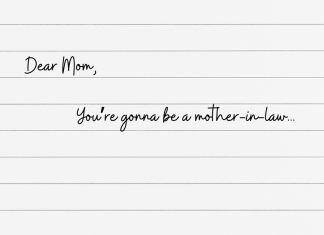 Dear Mom,
You're gonna be a mother-in-law...